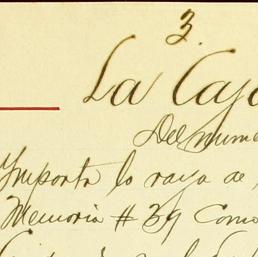 3.
La Caja
Del nume
Ymporta lo raya de
Memoria # 39 Como